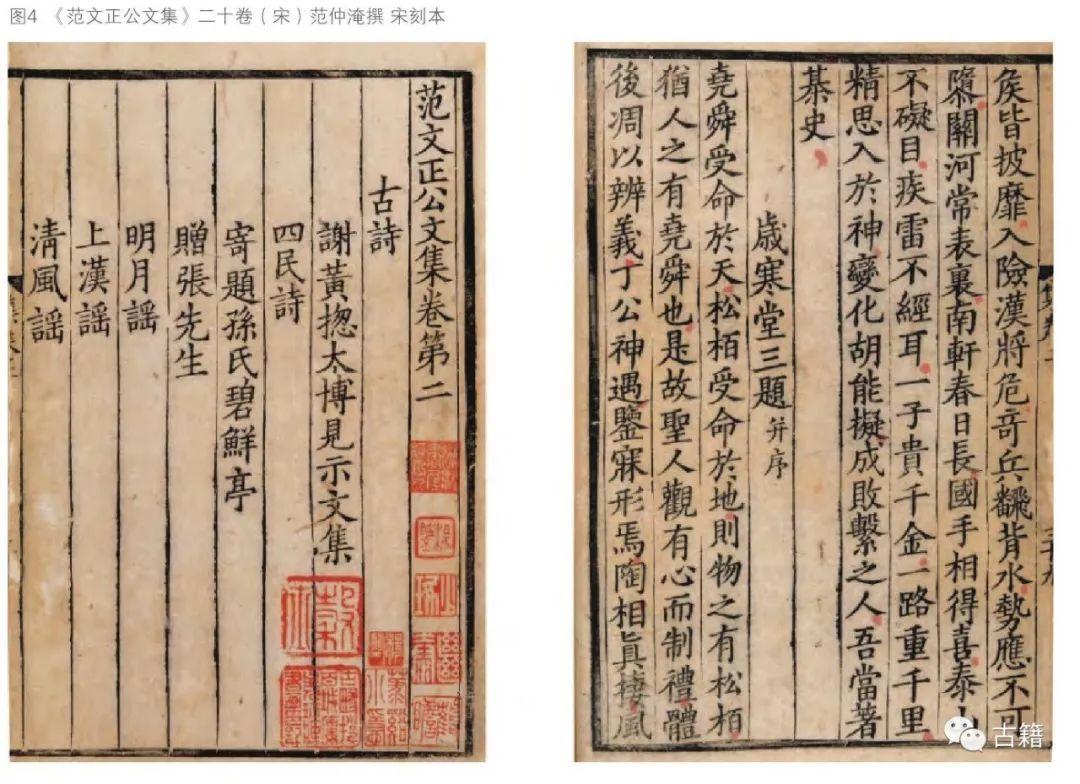 图4 《范文正公文集》二十卷（宋）范仲淹撰 宋刻本
范文正公文集卷第二
古詩
謝黃揔太博見示文集
四民詩
寄題孫氏碧鮮亭
贈張先生
明月謡
上漢謡
清風謡
矦皆披靡入險漢將危奇兵飜背水勢應不可
隳關河常表裏南軒春日長國手相得喜泰山
不礙目疾雷不經耳一子貴千金一路重千里
精思入於神變化胡能擬成敗繫之人吾當著
棊史
歲寒堂三題 并序
堯舜受命於天松栢受命於地則物之有松栢
猶人之有堯舜也是故聖人觀有心而制禮體
後凋以辨義丁公神遇鑒寐形焉陶相眞棲風
古籍